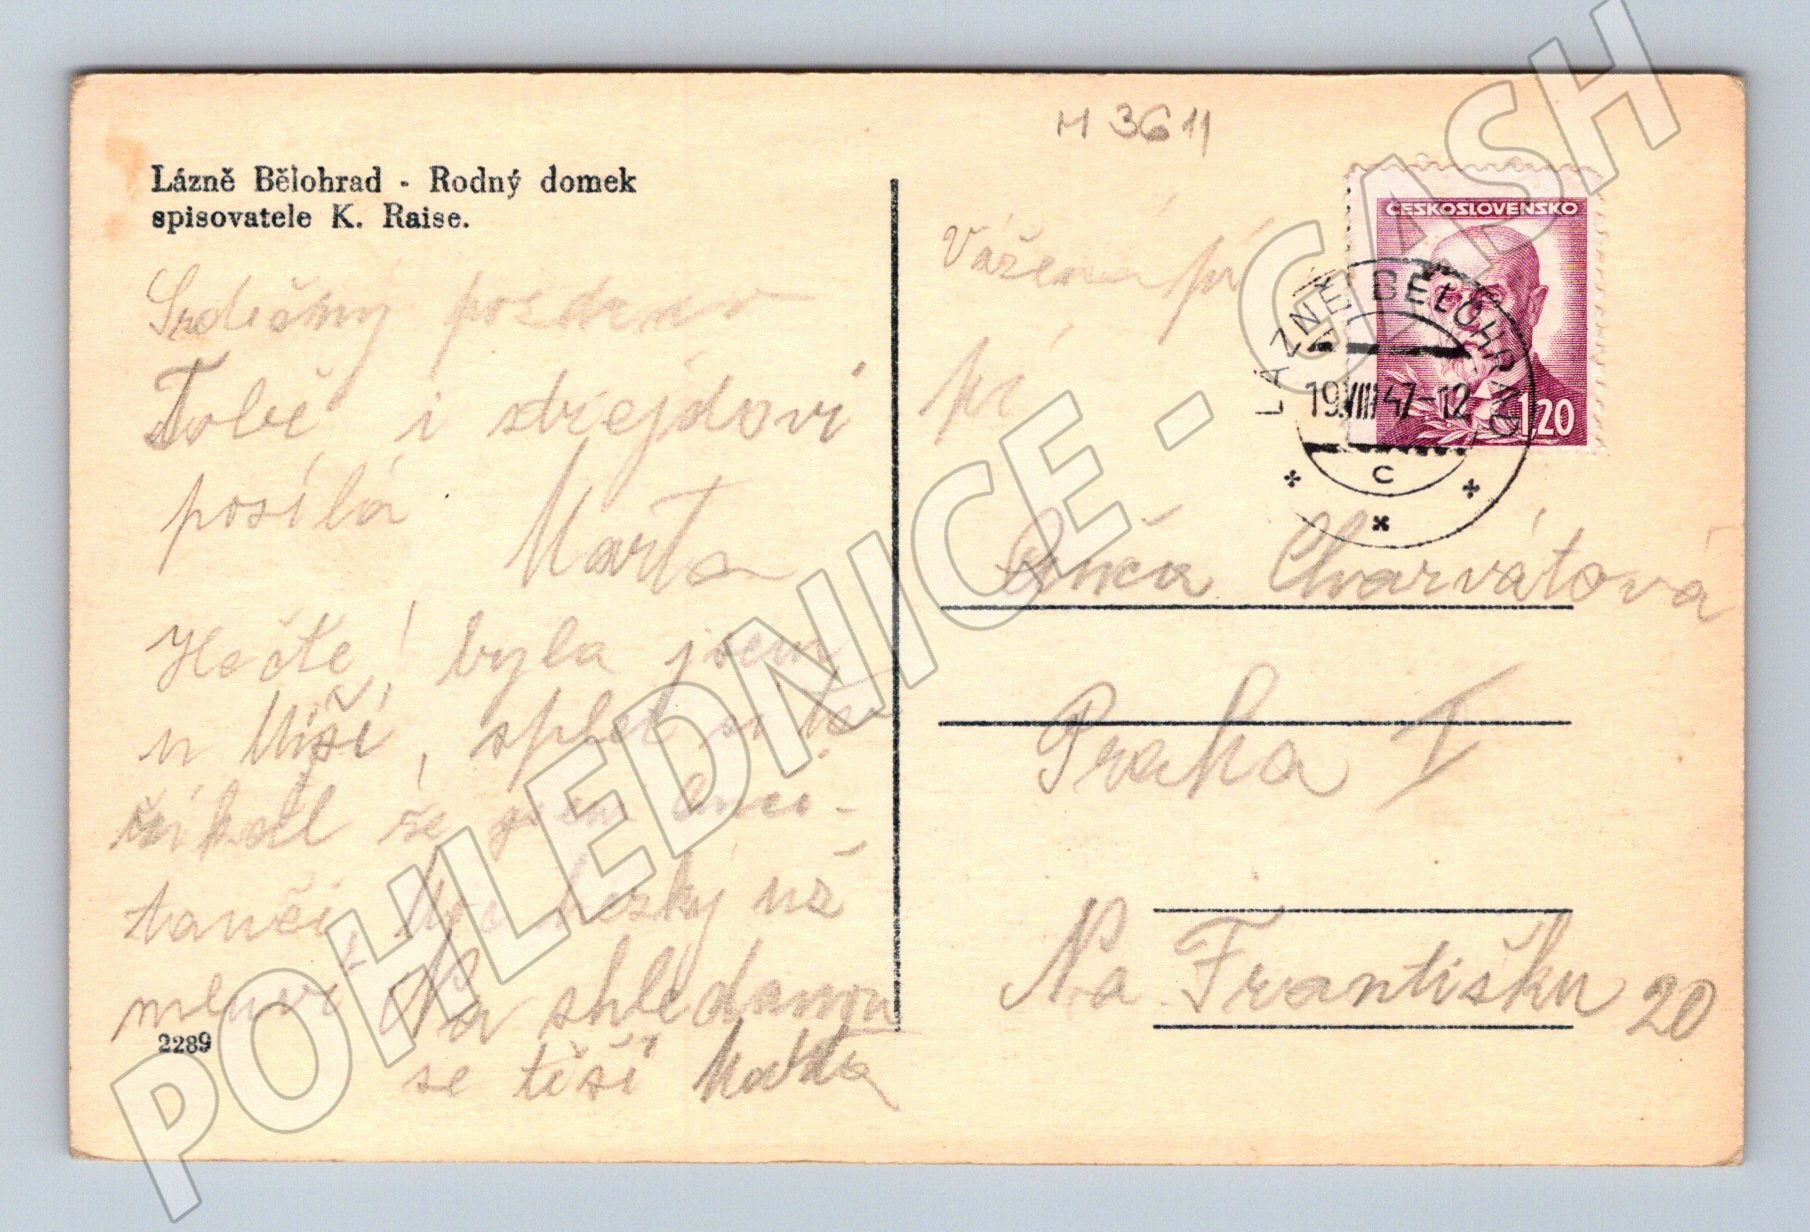 M 3611
Lázně Bělohrad - Rodný domek
spisovatele K. Raise.
Srdečný pozdrav
Tobě i strejdovi
posílá Marta
Hočte! byla jsem
u Míši,
říkal že jsem
tančí, hezky už
mluví Na shledanou
se těší Marta
2289
Vážená pí
pí
ČESKOSLOVENSKO
1,20
LÁZNĚ BĚLOHRAD
19.VIII 47-12
C
Anča Charvátová
Praha I
Na Františku 20
POHLEDNICE - CASH